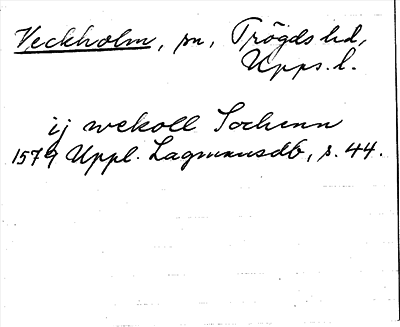 Veckholm, sn, Trögds hd,
Upps. l.
ij wekoll Sochenn
1579 Uppl. Lagmansdb, s. 44.